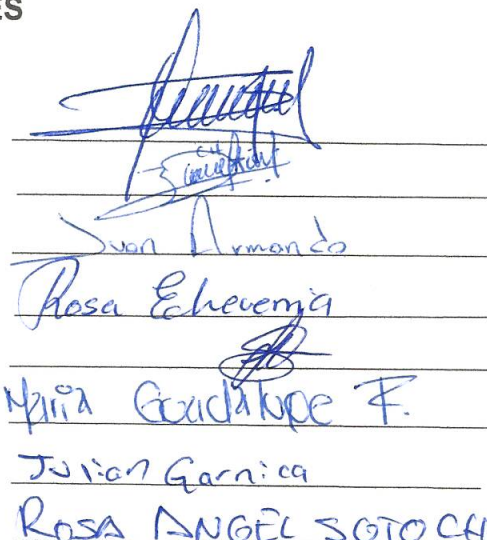 ES
Juan Armando
Rosa Echeverria
Maria Guadalupe F.
Julian Garnica
ROSA ANGEL SOTO CH